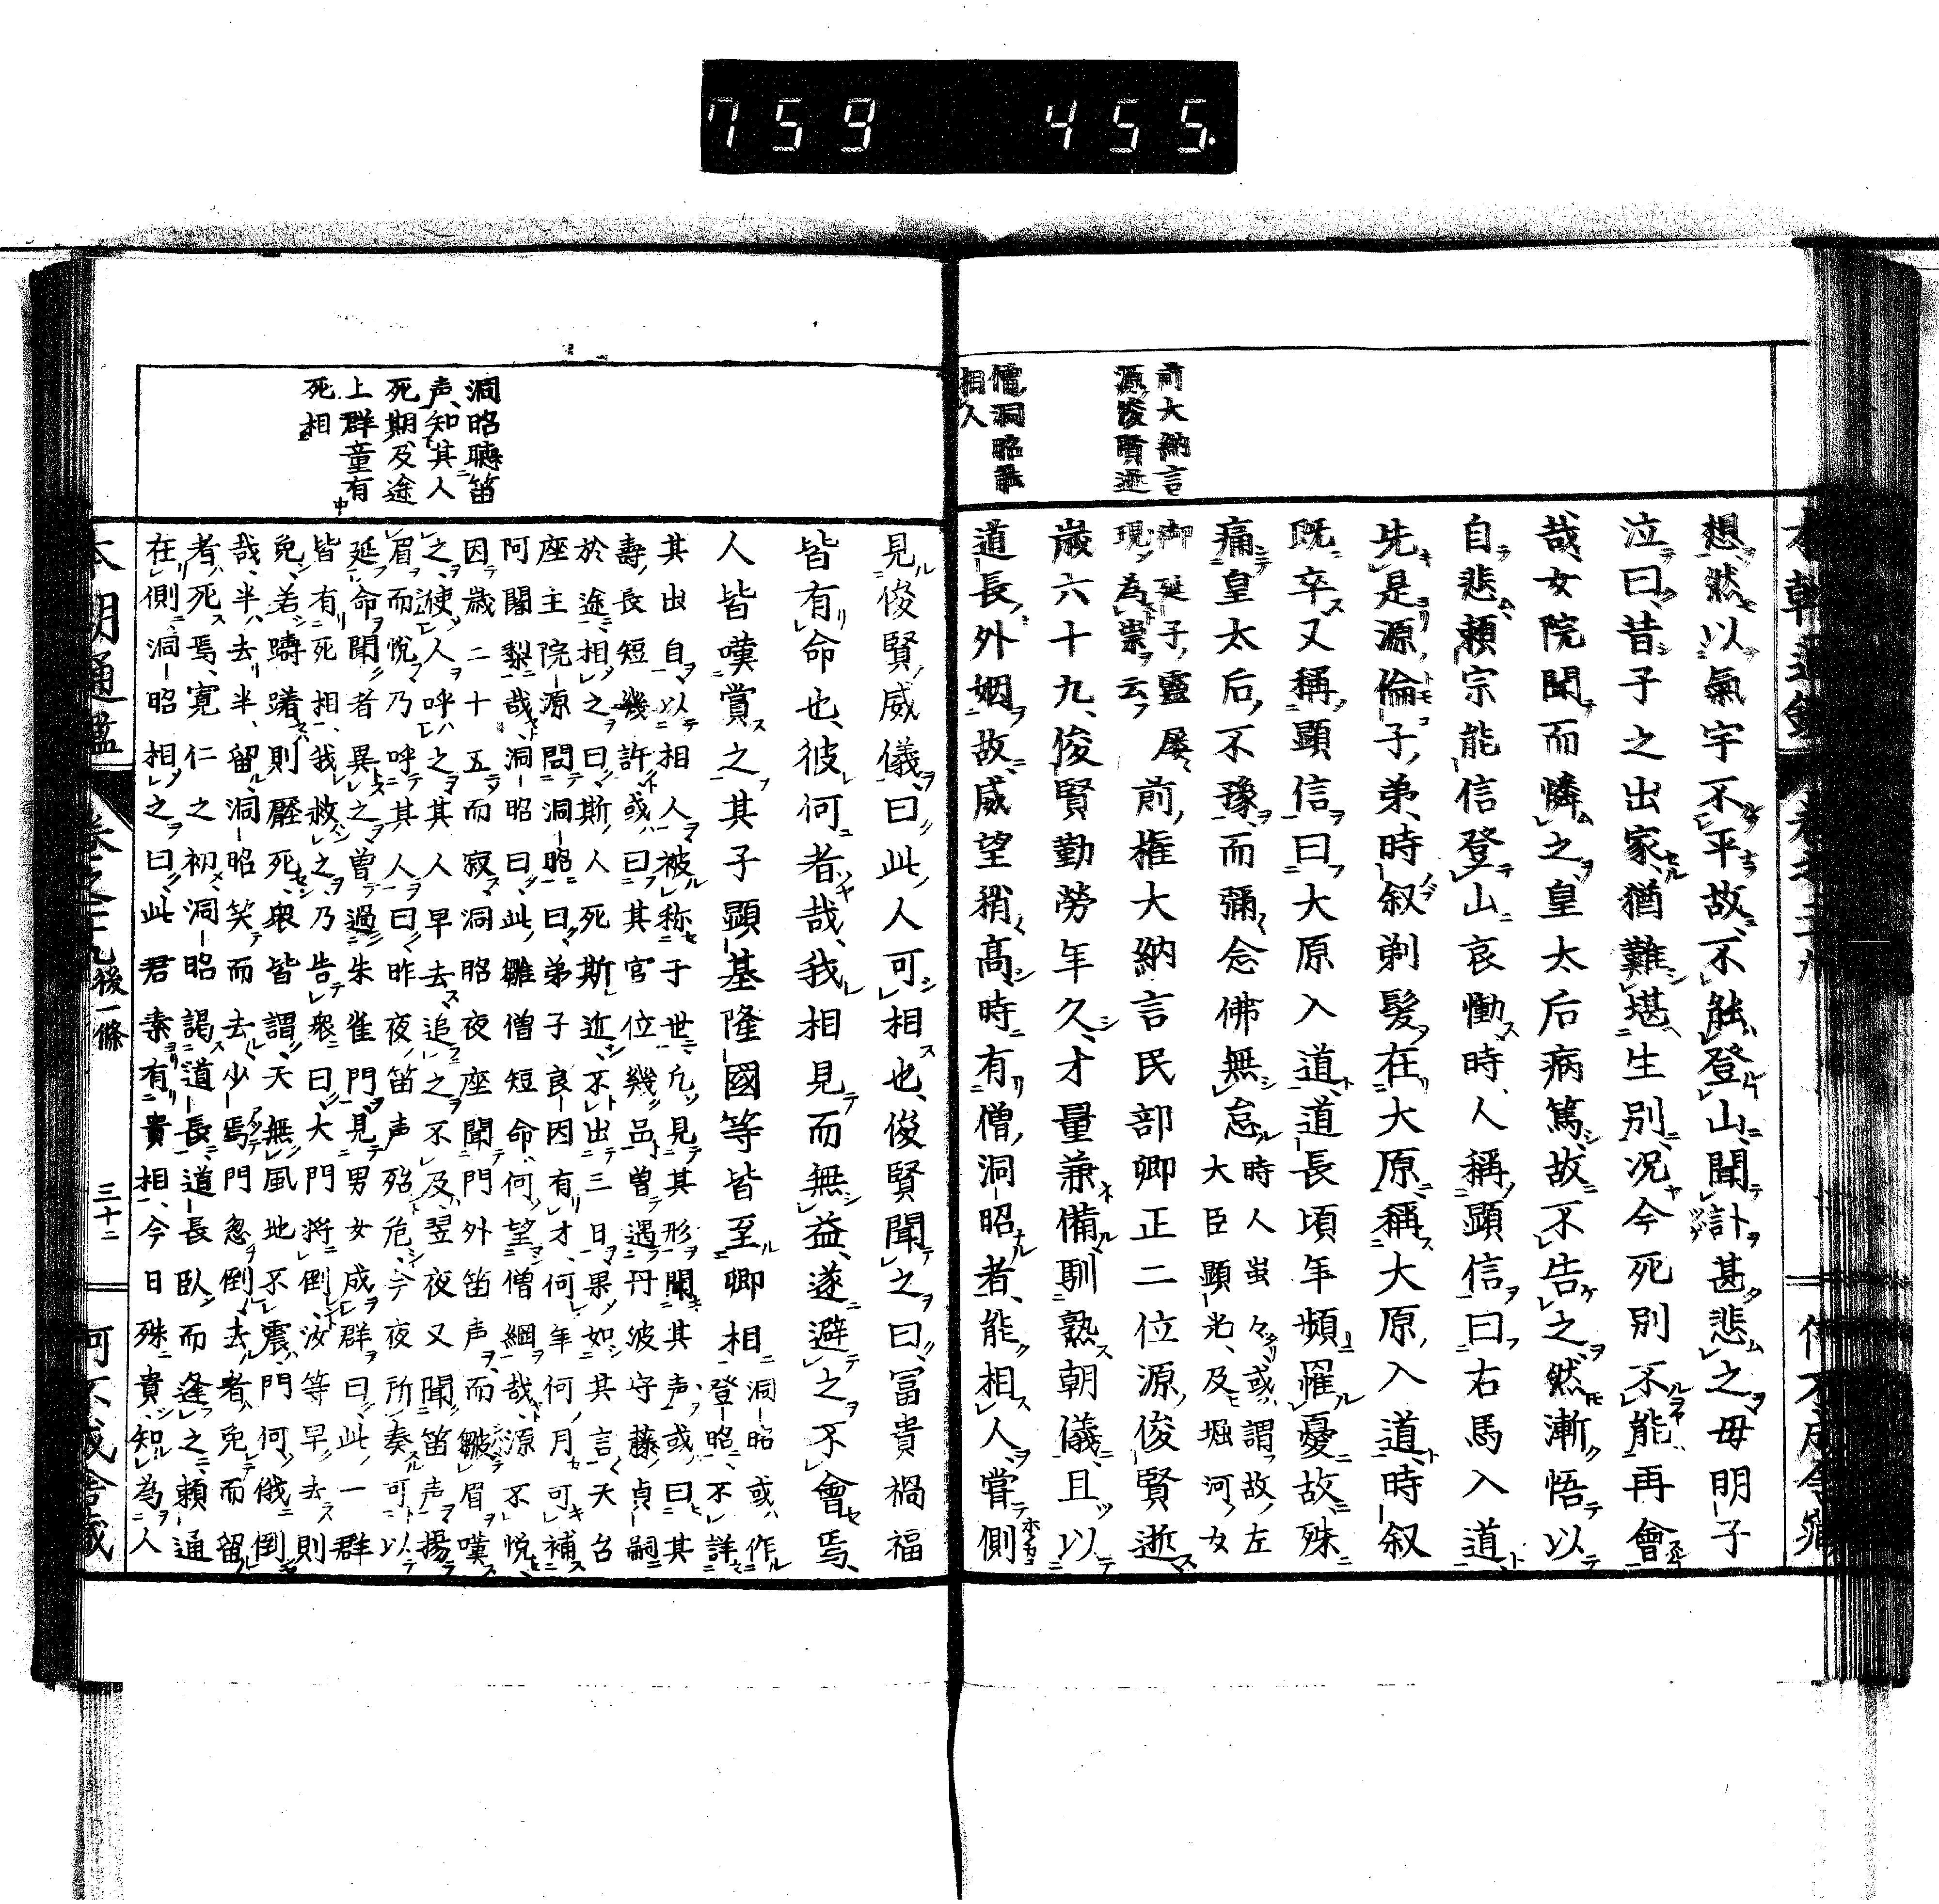 759 455.
前大納言
源俊賢逝
僧洞昭
相人
想然以氣宇不平故不能登山聞訃甚悲之母明子
泣曰昔子之出家猶難堪生別況今死別不能再會
哉女院聞而憐之皇太后病篤故不告之然漸悟以
自悲頼宗能信登山哀慟時人稱顕信曰右馬入道
先是源倫子弟時叙剃髪在大原稱大原入道時叙
既卒又稱顕信曰大原入道道長頃年頻罹憂故殊
痛皇太后不豫而彌念佛無怠
時人蚩々或謂故左
大臣顕光及堀河女
御延子靈屡
現為祟云
前権大納言民部卿正二位源俊賢逝
歳六十九俊賢勤勞年久才量兼備馴熟朝儀且以
道長外姻故威望稍高時有僧洞昭者能相人嘗側
洞昭聴笛
声知其人
死期及途
上群童有
死相中
見俊賢威儀曰此人可相也俊賢聞之曰冨貴禍福
皆有命也彼何者哉我相見而無益遂避之不會焉
人皆嘆賞之其子顕基隆國等皆至卿相
洞昭或作
登昭不詳
其出自以相人被称于世凡見其形聞其声或曰其
壽長短幾許或曰其官位幾品曽遇丹波守藤貞嗣
於途相之曰斯人死斯近不出三日果如其言天台
座主院源問洞昭曰弟子良因有才何年何月可補
阿闍梨哉洞昭曰此雖僧短命何望僧綱哉源不悦
因歳二十五而寂洞昭夜座聞門外笛声而皺眉嘆
之使人呼之其人早去追之不及翌夜又聞笛声揚
眉而悦乃呼其人曰昨夜笛声殆危今夜所奏可以
延命聞者異之曽過朱雀門見男女成群曰此一群
皆有死相我救之乃告衆曰大門将倒汝等早去則
免若躊躇則壓死衆皆謂天無風地不震門何俄倒
哉半去半留洞昭笑而去少焉門忽倒去者免而留
者死焉寛仁之初洞昭謁道長道長臥而逢之頼通
在側洞昭相之曰此君素有貴相今日殊貴知為人
本朝通鑑
巻之二十九 後一條
三十二